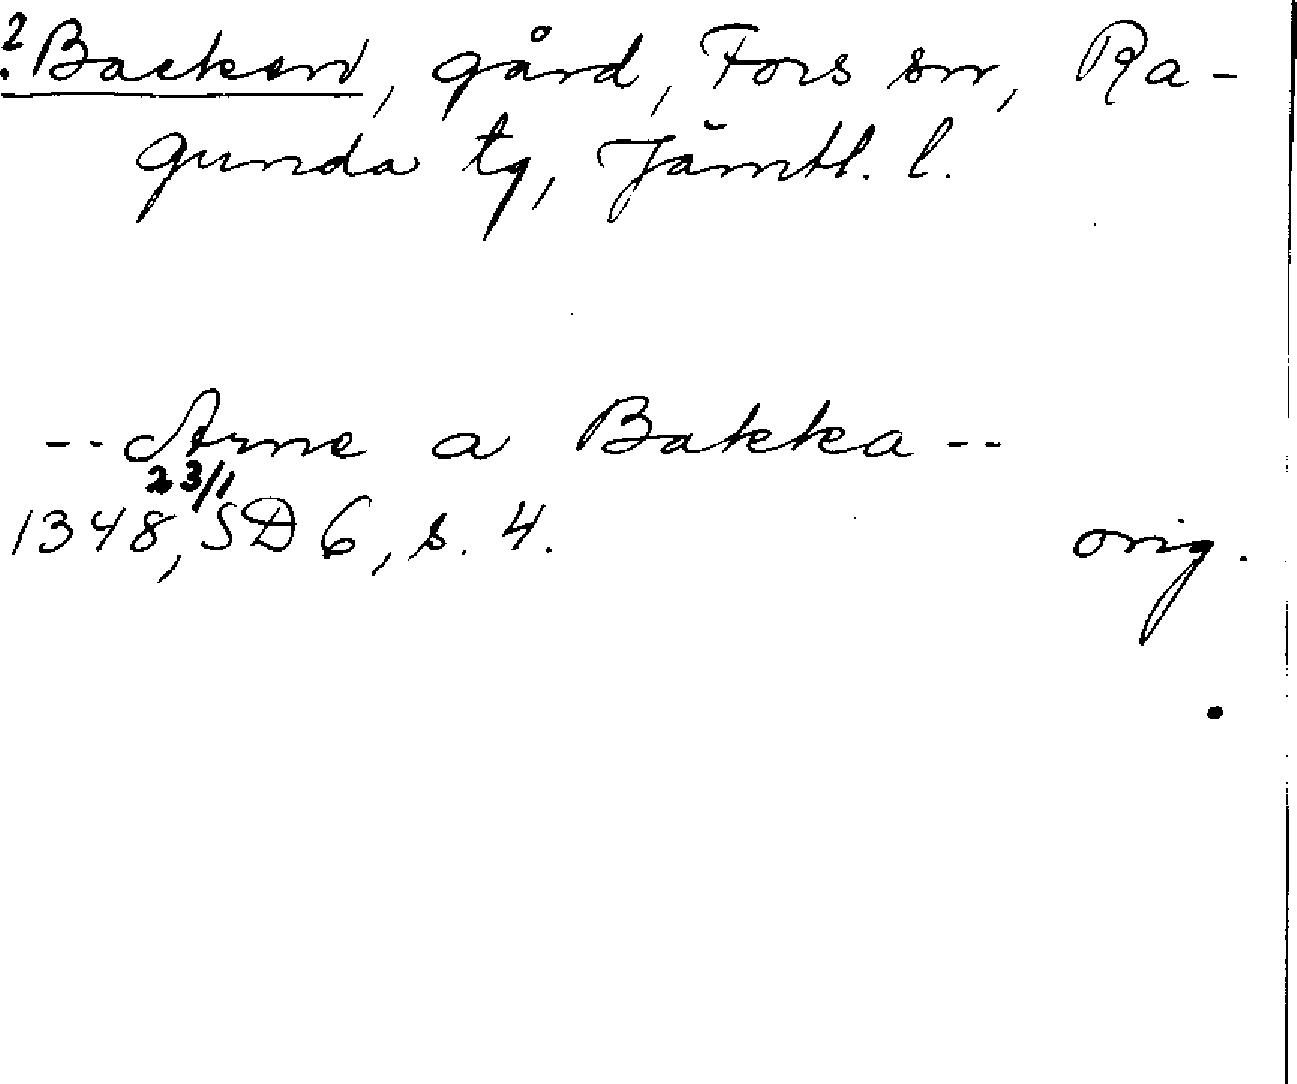 ? Backen, gård, Fors sn, Ra-
gunda tg, Jämtl. l.
-- Arne a Bakka --
23/1
1348, SD 6, s. 4. orig.